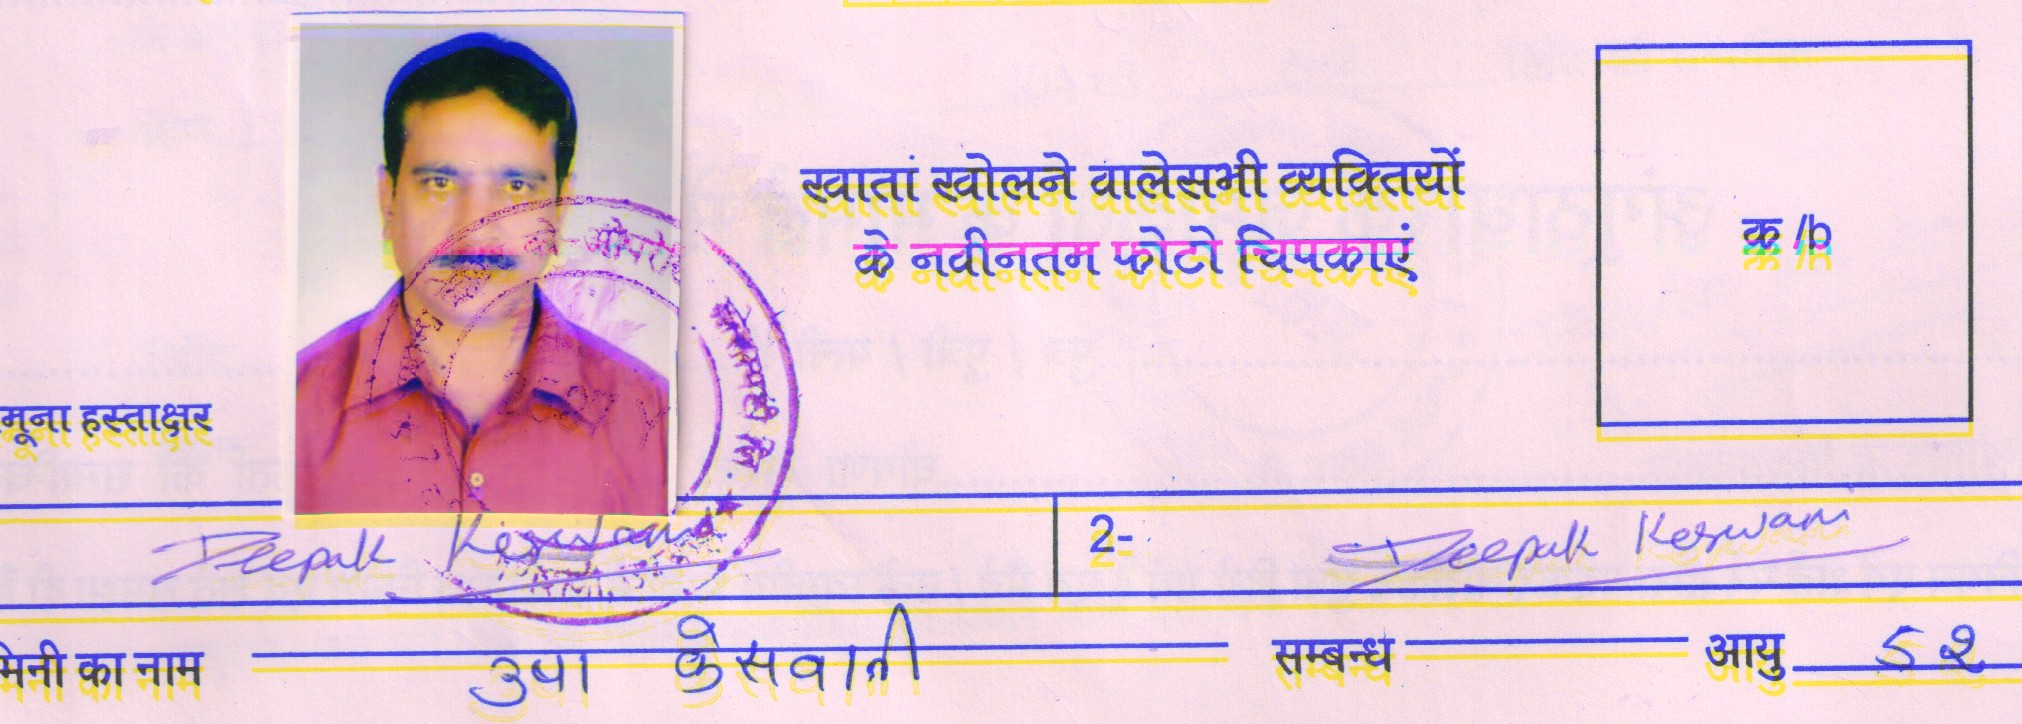 खातां खोलने वालेसभी व्यक्तियों
के नवीनतम फोटो चिपकाएं
क्र /b
मूना हस्ताक्षर
Deepak Keswani
2- Deepak Keswani
मिनी का नाम उषा केसवानी सम्बन्ध आयु 52